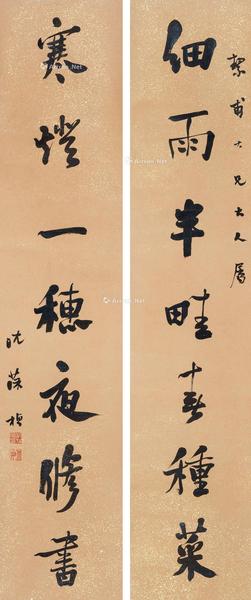 絜甫大兄大人属
细雨半畦春種菜
寒燈一穗夜脩書
沈葆楨